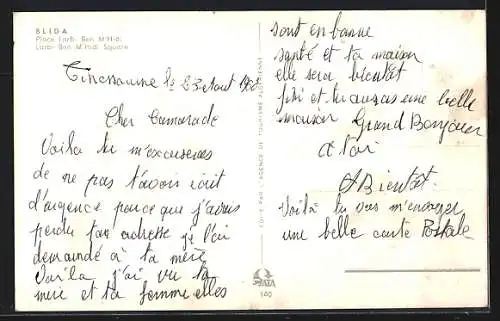 BLIDA
Place Larbi Ben M'Hidi
Larbi Ben M'Hidi Square
le 23 Aout
Cher Camarade
Voila tu m'excuseras
de ne pas t'avoir écrit
d'urgence parce que j'avais
perdu ton adresse je l'ai
demandé à ta mère
Voila j'ai vu ta
mère et ta femme elles
sont en bonne
santé et ta maison
elle sera bientot
fini et tu auras une belle
maison Grand Bonjour
a toi
A Bientot.
Voilà tu vas m'envoyer
une belle carte Postale
EDITE PAR L'AGENCE DE TOURISME
JEFAL
100